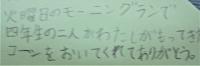 火曜日のモーニングランで
四年生の二人がわたしがもってきた
コーンをおいてくれてありがとう。